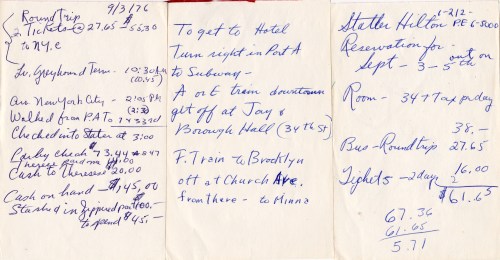 9/3/76
Round Trip
2 Tickets @ 27.65 = 55.30
to N.Y.C
Lv. Greyhound Term - 10:30 AM
(10:45)
Arr. New York City - 2:05 PM
(2:30)
Walked from P.A. To 7 & 33rd
Checked into Statler at 3:00
Early Check $73.44
Therese
Cash to Therese $20.00
Cash on hand - $145.00
Stashed in zippered part 100.-
to spend $45.-
To get to Hotel
Turn right in Port A
to Subway -
A or E train downtown
get off at Jay &
Borough Hall (34th St)
F. Train to Brooklyn
off at Church Ave.
from there - to Minna
Statler Hilton 1-212-
PE 6-5000
Reservation for -
Sept - 3 - 5th
out on
Room - 34 + Tax per day
38.-
Bus - Roundtrip 27.65
Tickets - 2 day 16.00
2
$61.65
67.36
61.65
5.71